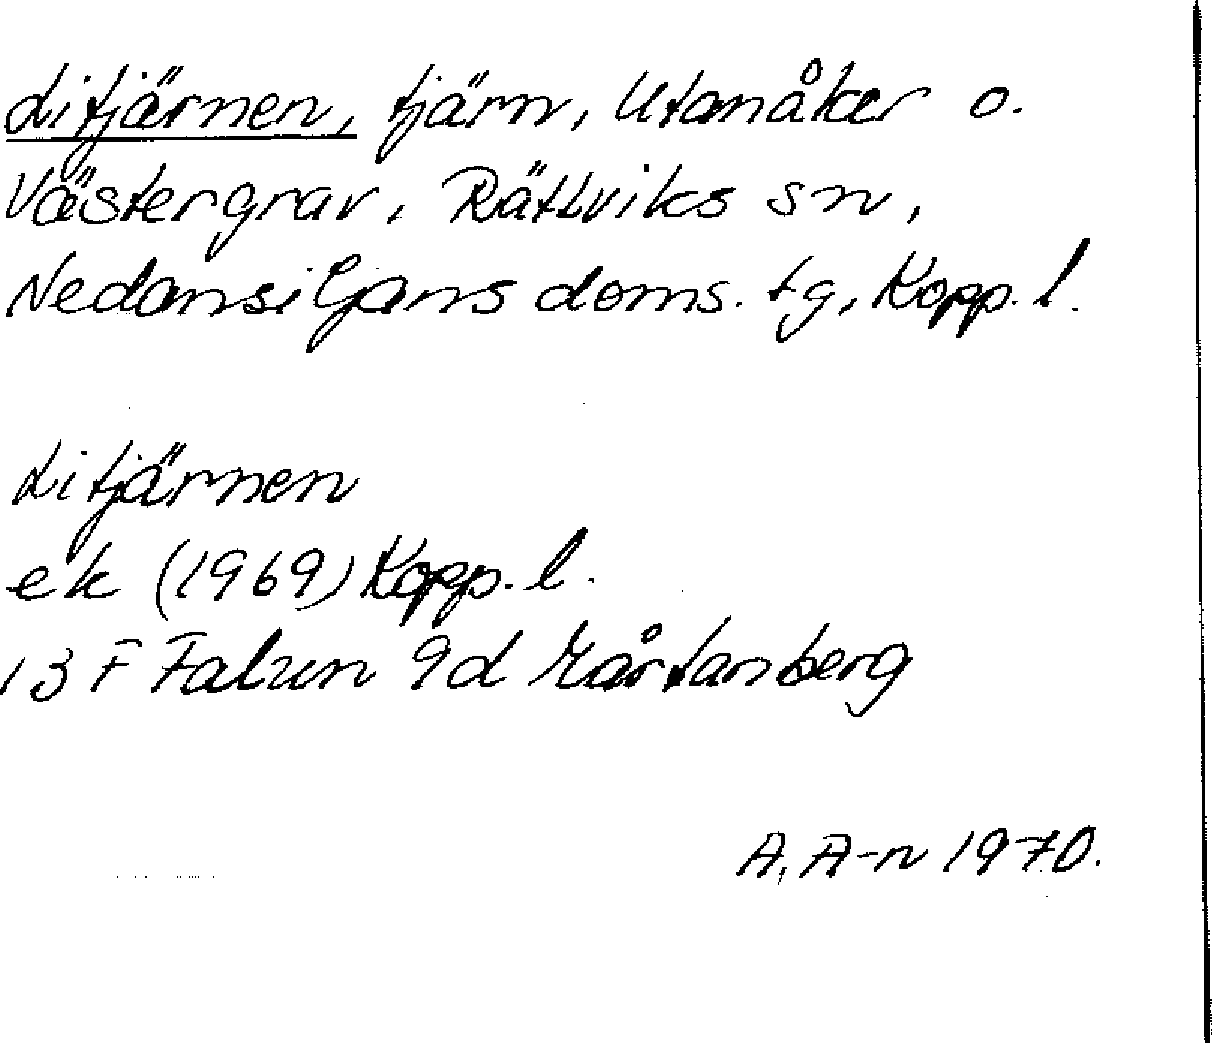 Litjärnen, tjärn, Utanåker o.
Västergrav, Rättviks sn,
Nedansiljans doms. tg, Kopp. l.
Litjärnen
ek (1969) Kopp. l.
13 F Falun 9d Mårtanberg
A, A-n 1970.